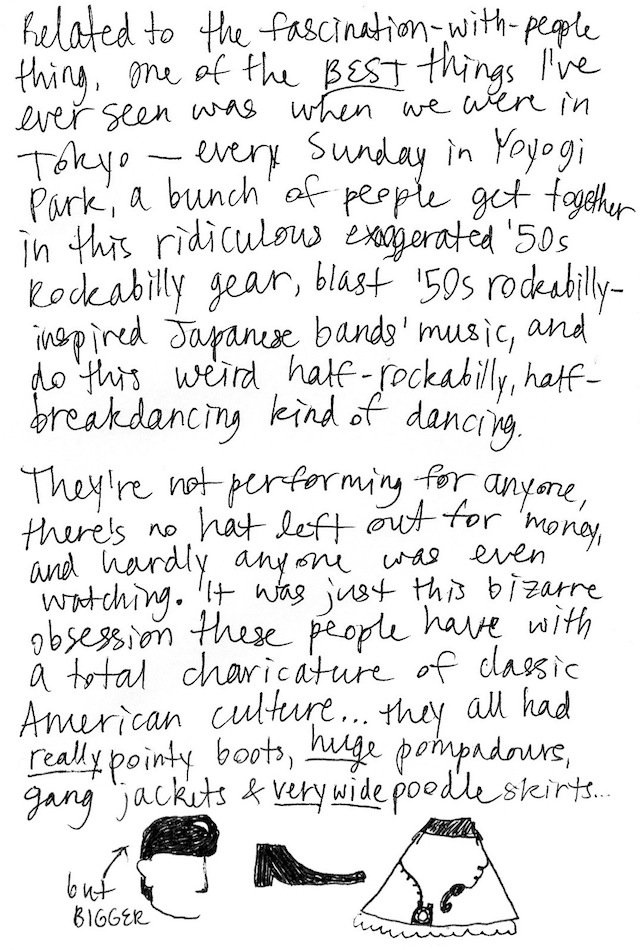 Related to the fascination-with-people
thing, one of the BEST things I've
ever seen was when we were in
Tokyo — every Sunday in Yoyogi
Park, a bunch of people get together
in this ridiculous exaggerated '50s
Rockabilly gear, blast '50s rockabilly-
inspired Japanese bands' music, and
do this weird half-rockabilly, half-
breakdancing kind of dancing.
They're not performing for anyone,
there's no hat left out for money,
and hardly anyone was even
watching. It was just this bizarre
obsession these people have with
a total charicature of classic
American culture... they all had
really pointy boots, huge pompadours,
gang jackets & very wide poodle skirts...
but
BIGGER